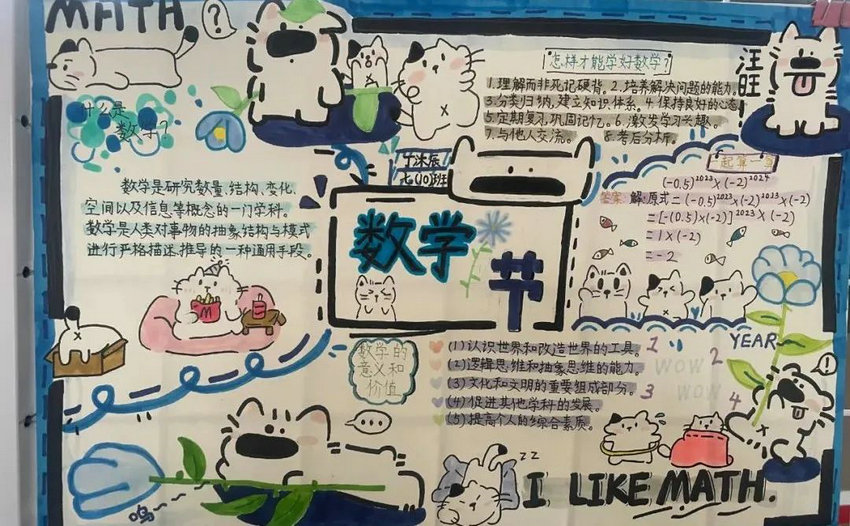 MATH
?
怎样才能学好数学?
1.理解而非死记硬背。2.培养解决问题的能力。
3.分类归纳,建立知识体系。4.保持良好的心态。
5.定期复习,巩固记忆。6.激发学习兴趣。
7.与他人交流。 8.考后分析。
汪
旺
什么是
数学?
数学是研究数量、结构、变化、
空间以及信息等概念的一门学科。
数学是人类对事物的抽象结构与模式
进行严格描述、推导的一种通用手段。
七(10)班
(-0.5)²⁰²³×(-2)²⁰²⁴
答案: 解:原式=(-0.5)²⁰²³×(-2)²⁰²³×(-2)
=[-(0.5)×(-2)]²⁰²³×(-2)
=1×(-2)
=-2
数学
节
数学的
意义和
价值
(1)认识世界和改造世界的工具。
(2)逻辑思维和抽象思维的能力。
(3)文化和文明的重要组成部分。
(4)促进其他学科的发展。
(5)提高个人的综合素质。
1
2
3
4
WOW
WOW
YEAR
!
zz
I LIKE MATH.